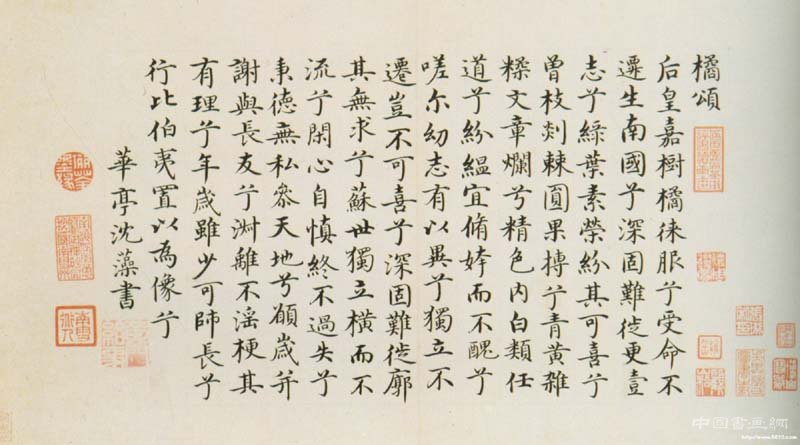 橘頌
后皇嘉樹橘徠服兮受命不
遷生南國兮深固難徙更壹
志兮綠葉素榮紛其可喜兮
曾枝剡棘圓果摶兮青黃雜
糅文章爛兮精色內白類任
道兮紛縕宜脩姱而不醜兮
嗟尔幼志有以異兮獨立不
遷豈不可喜兮深固難徙廓
其無求兮蘇世獨立橫而不
流兮閑心自慎終不過失兮
秉德無私參天地兮願歲并
謝與長友兮淑離不淫梗其
有理兮年歲雖少可師長兮
行比伯夷置以為像兮
華亭沈藻書
中国書画網